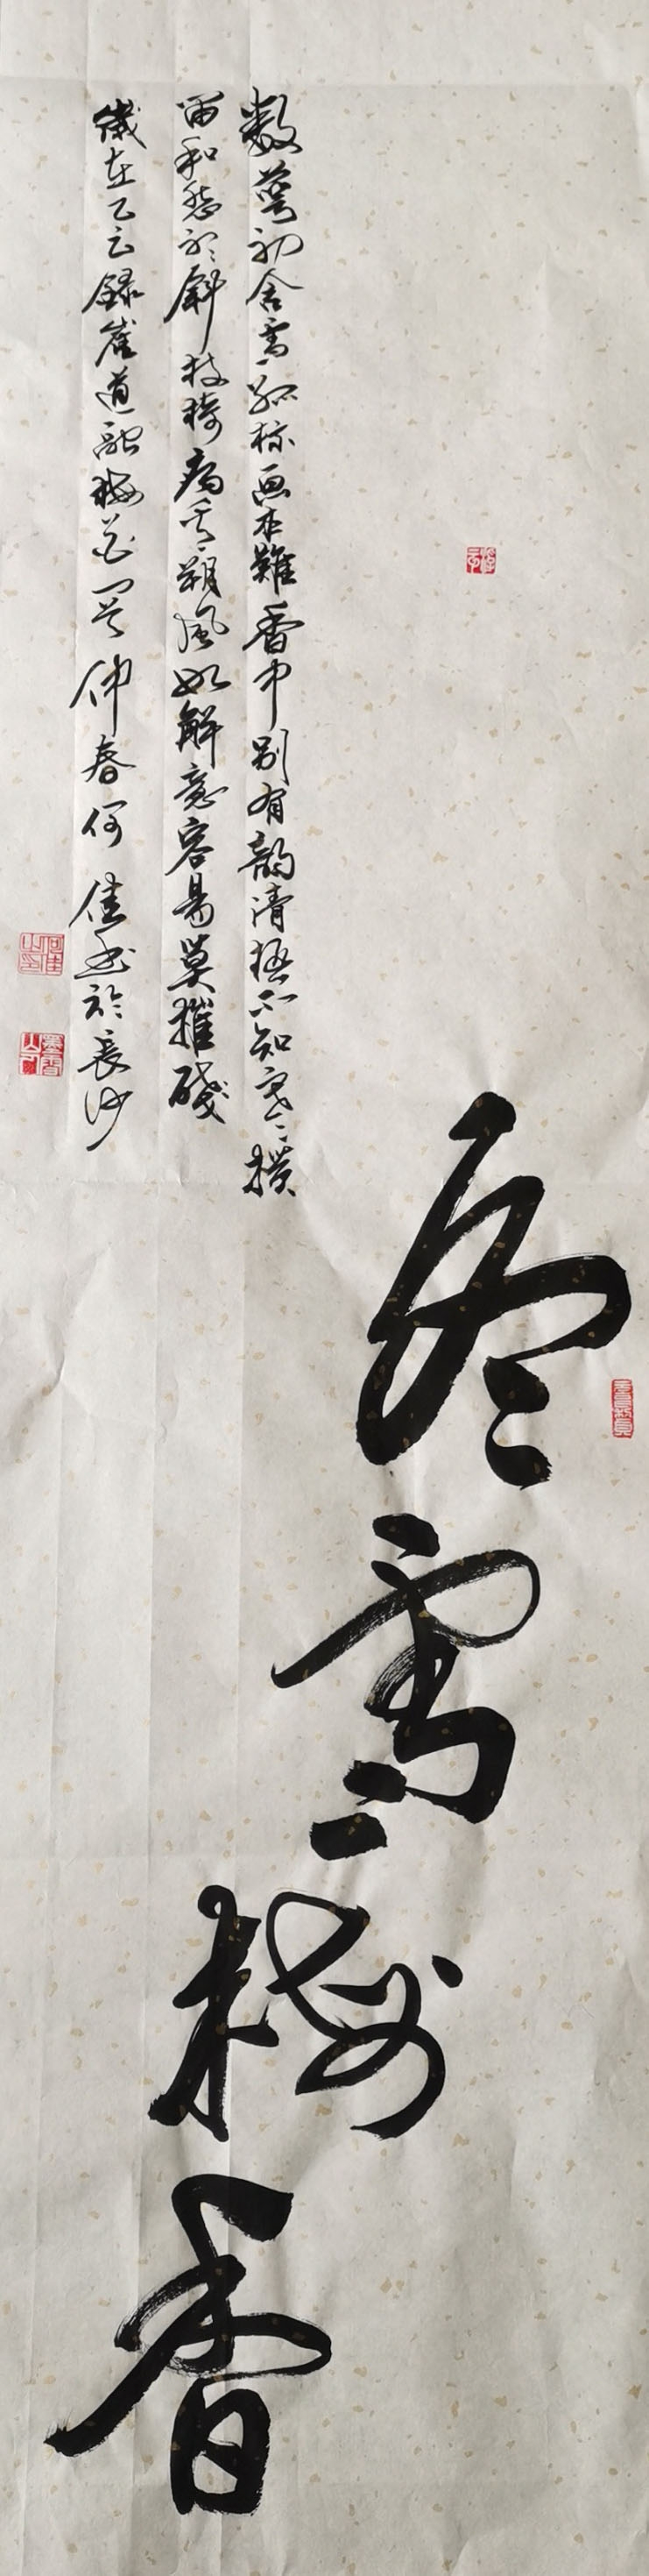 冬雪梅香
数萼初含雪孤標画本難香中别有韵清極不知寒横
笛和愁聽斜枝倚病看朔風如解意容易莫摧殘
歲在乙巳錄崔道融梅花一首仲春何佳書於長沙